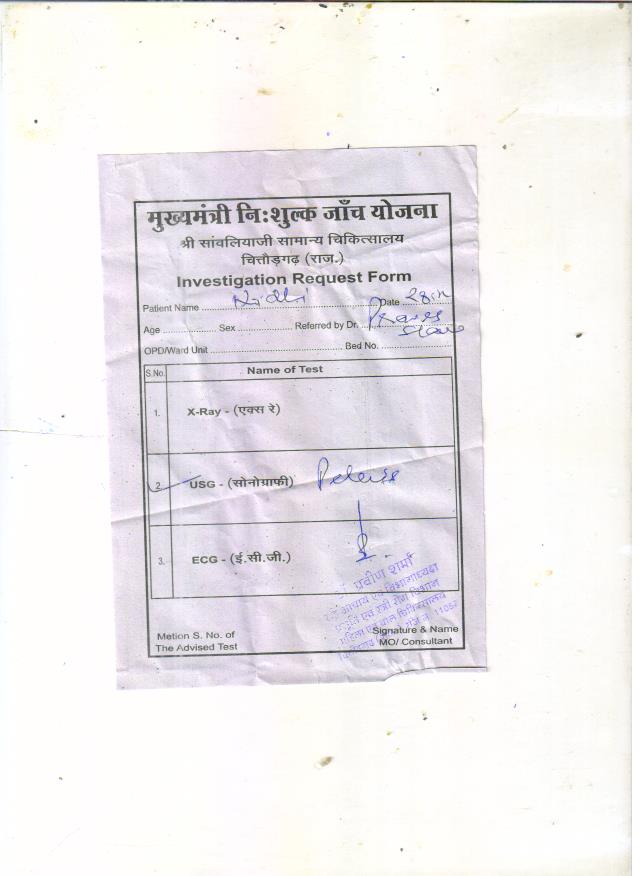 मुख्यमंत्री निःशुल्क जाँच योजना
श्री सांवलियाजी सामान्य चिकित्सालय
चित्तौड़गढ़ (राज.)
Investigation Request Form
Patient Name Nidhi Date
Age Sex Referred by Dr.
OPD/Ward Unit Bed No.
S.No. Name of Test
1. X-Ray - (एक्स रे)
2. USG - (सोनोग्राफी) Pelvis
3. ECG - (ई.सी.जी.)
डॉ. प्रवीण शर्मा
आचार्य एवं विभागाध्यक्ष
प्रसूति एवं स्त्री रोग विभाग
महिला एवं बाल चिकित्सालय
Metion S. No. of
The Advised Test
Signature & Name
MO/ Consultant